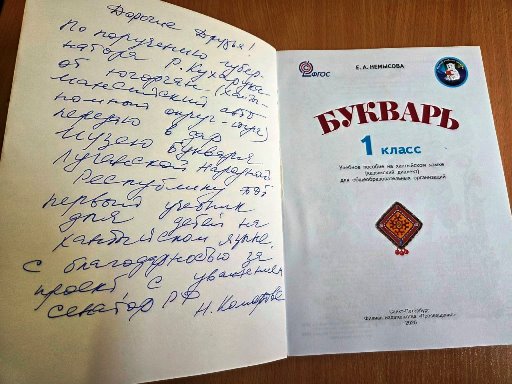 Дорогие Друзья!
По поручению губер-
натора Р. Кухарука
от югорчан (Хан-
мансийский авто-
номный округ-Югра)
передаю в дар
Музею Букваря
Луганской Народной
Республики этот
первый учебник
для детей на
хантыйском языке.
С благодарностью за
проект, с уважением
сенатор РФ Н. Комарова
ФГОС
Е. А. НЕМЫСОВА
БУКВАРЬ
1 класс
Учебное пособие на хантыйском языке
(казымский диалект)
для общеобразовательных организаций
Санкт-Петербург
Филиал издательства «Просвещение»